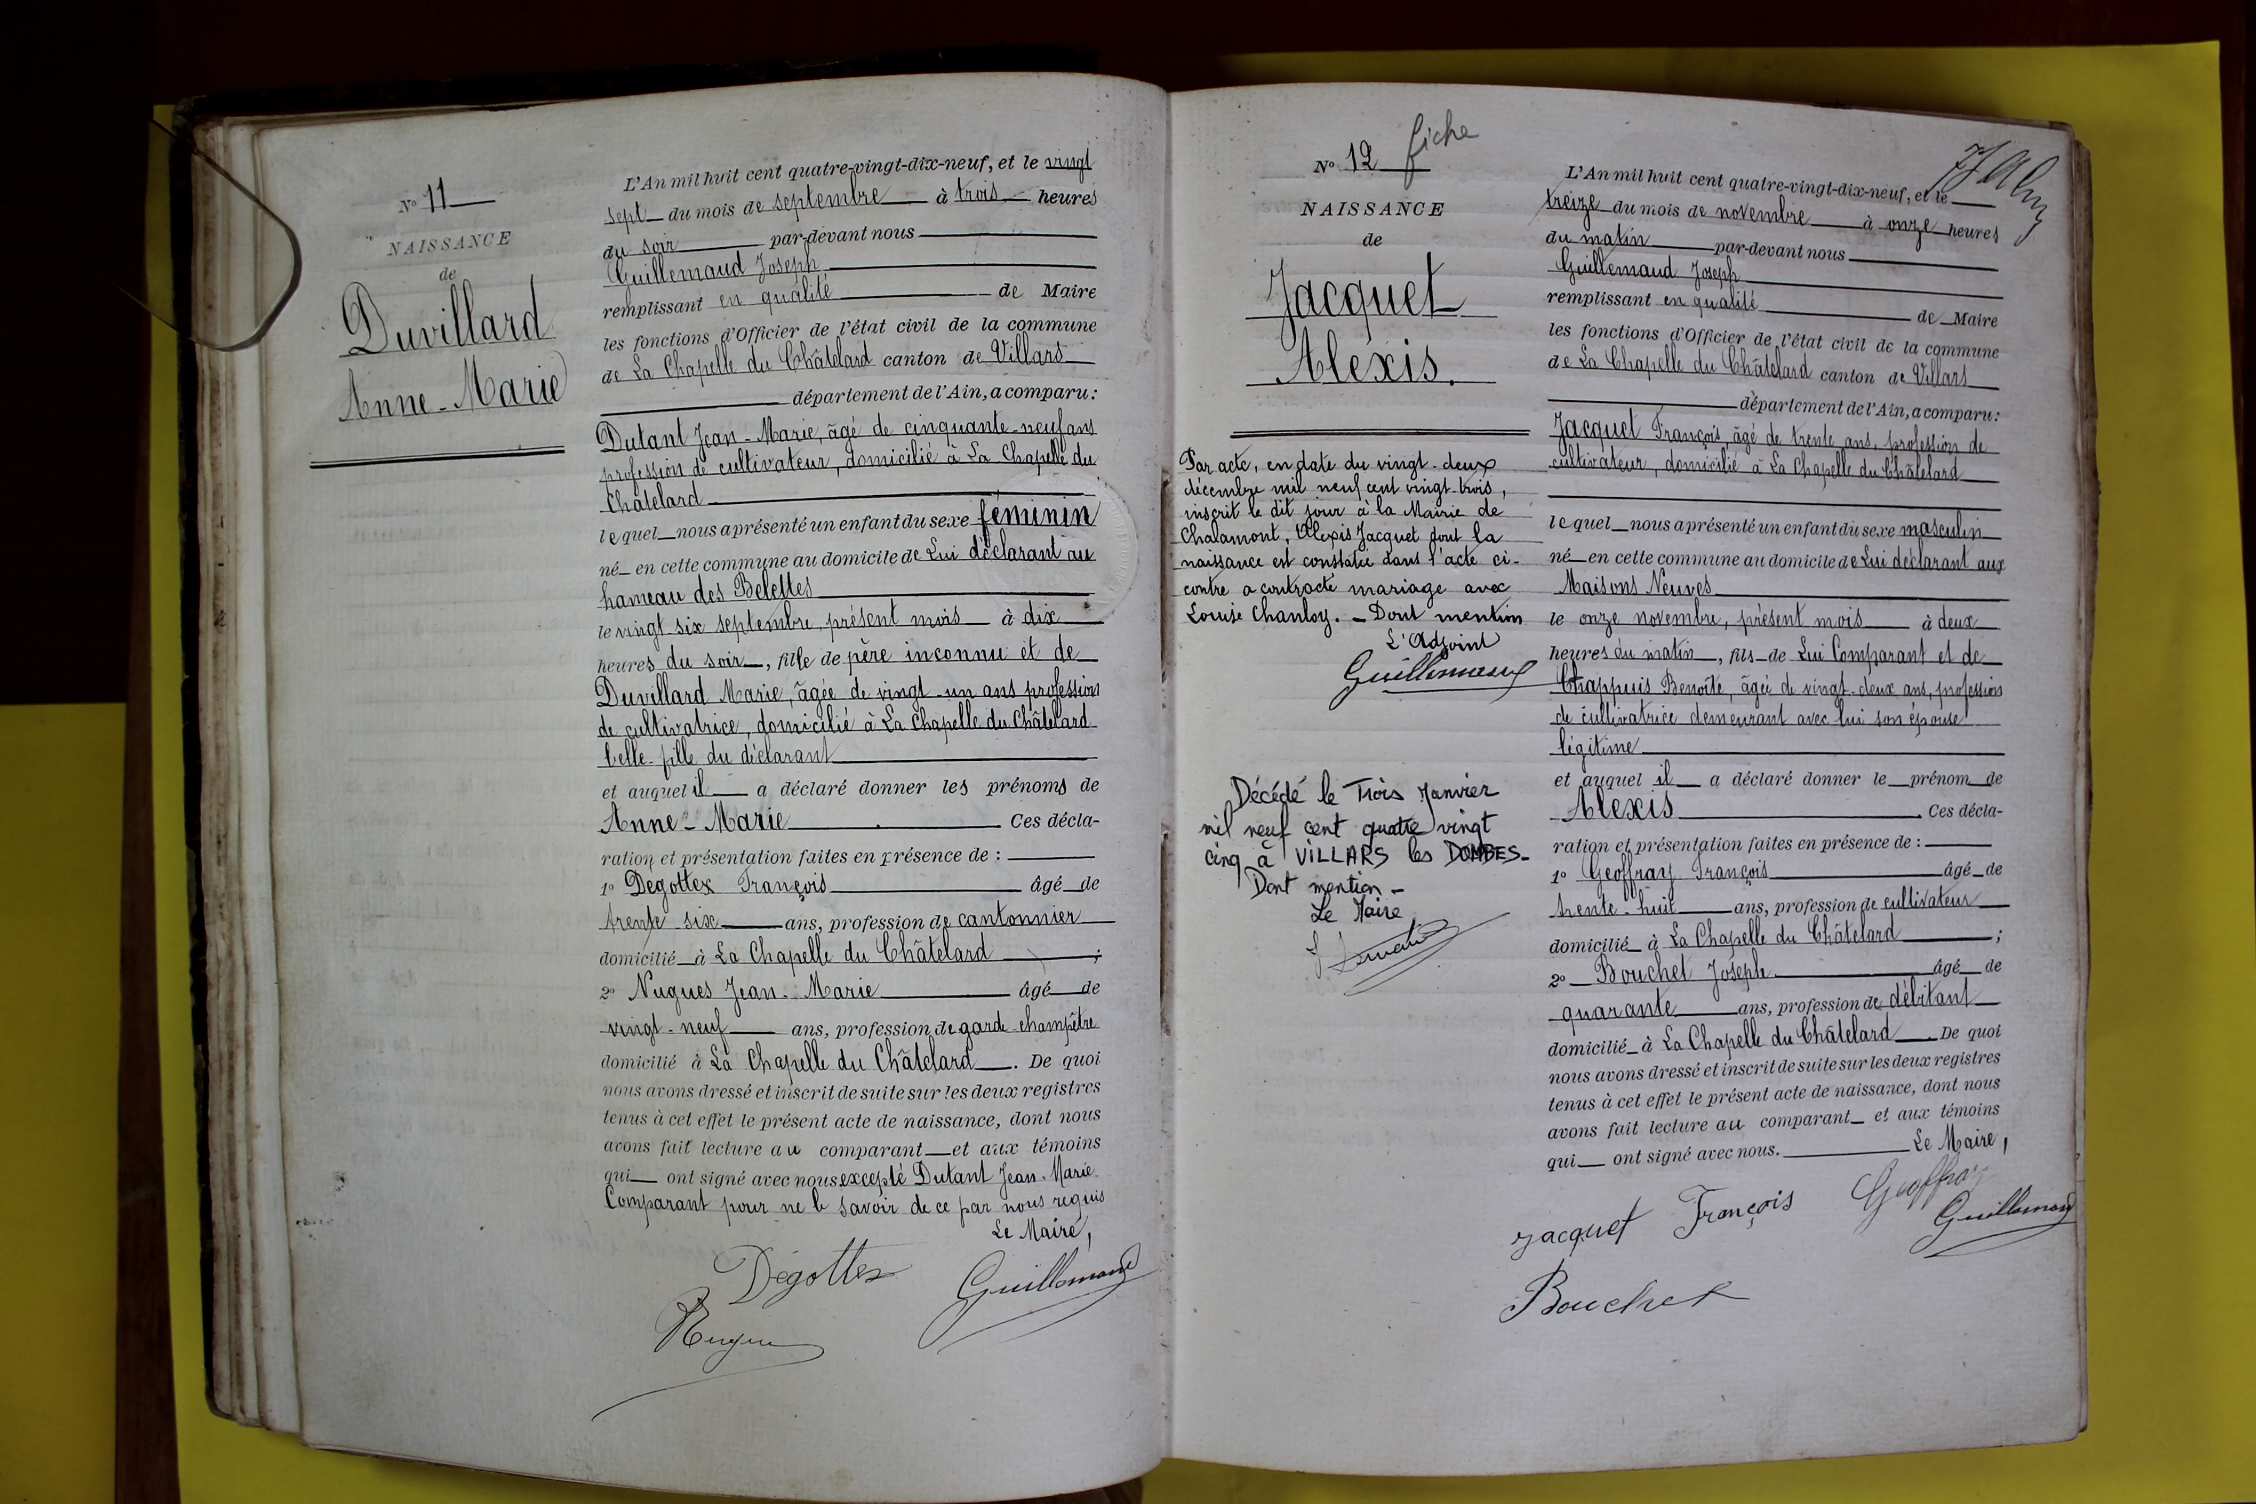 N° 11
NAISSANCE
de
Duvillard
Anne-Marie
L'An mil huit cent quatre-vingt-dix-neuf, et le vingt
sept du mois de septembre à trois heures
du soir par-devant nous
Guillemaud Joseph
remplissant en qualité de Maire
les fonctions d'Officier de l'état civil de la commune
de La Chapelle du Châtelard canton de Villars
département de l'Ain, a comparu :
Dutant Jean-Marie, âgé de cinquante-neuf ans
profession de cultivateur, domicilié à La Chapelle du
Châtelard
lequel nous a présenté un enfant du sexe féminin
né en cette commune au domicile de Lui déclarant au
hameau des Belettes
le vingt-six septembre, présent mois à dix
heures du soir, fille de père inconnu et de
Duvillard Marie, âgée de vingt-un ans profession
de cultivatrice, domicilié à La Chapelle du Châtelard
belle-fille du déclarant
et auquel il a déclaré donner les prénoms de
Anne-Marie Ces décla-
ration et présentation faites en présence de :
1° Dégottex François âgé de
trente six ans, profession de cantonnier
domicilié à La Chapelle du Châtelard ;
2° Nugues Jean-Marie âgé de
vingt-neuf ans, profession de garde-champêtre
domicilié à La Chapelle du Châtelard. De quoi
nous avons dressé et inscrit de suite sur les deux registres
tenus à cet effet le présent acte de naissance, dont nous
avons fait lecture au comparant et aux témoins
qui ont signé avec nous excepté Dutant Jean-Marie
Comparant pour ne le savoir de ce par nous requis
Le Maire,
Dégottex
Guillemaud
N° 12 fiche
NAISSANCE
de
Jacquet
Alexis.
Par acte, en date du vingt-deux
décembre mil neuf cent vingt-trois,
inscrit le dit jour à la Mairie de
Chalamont, Alexis Jacquet dont la
naissance est constatée dans l'acte ci-
contre a contracté mariage avec
Louise Chanloy. - Dont mention
L'Adjoint
Guillemaud
Décédé le Trois Janvier
mil neuf cent quatre vingt
cinq à VILLARS les DOMBES-
Dont mention -
Le Maire
L'An mil huit cent quatre-vingt-dix-neuf, et le
treize du mois de novembre à onze heures
du matin par-devant nous
Guillemaud Joseph
remplissant en qualité de Maire
les fonctions d'Officier de l'état civil de la commune
de La Chapelle du Châtelard canton de Villars
département de l'Ain, a comparu :
Jacquet François, âgé de trente ans, profession de
cultivateur, domicilié à La Chapelle du Châtelard
lequel nous a présenté un enfant du sexe masculin
né en cette commune au domicile de Lui déclarant aux
Maisons Neuves
le onze novembre, présent mois à deux
heures du matin, fils de Lui Comparant et de
Chappuis Benoîte, âgée de vingt-deux ans, profession
de cultivatrice demeurant avec lui son épouse
légitime
et auquel il a déclaré donner le prénom de
Alexis. Ces décla-
ration et présentation faites en présence de :
1° Geoffray François âgé de
trente-huit ans, profession de cultivateur
domicilié à La Chapelle du Châtelard ;
2° Bouchet Joseph âgé de
quarante ans, profession de débitant
domicilié à La Chapelle du Châtelard. De quoi
nous avons dressé et inscrit de suite sur les deux registres
tenus à cet effet le présent acte de naissance, dont nous
avons fait lecture au comparant et aux témoins
qui ont signé avec nous. Le Maire,
Jacquet François Geoffray
Guillemaud
Bouchet